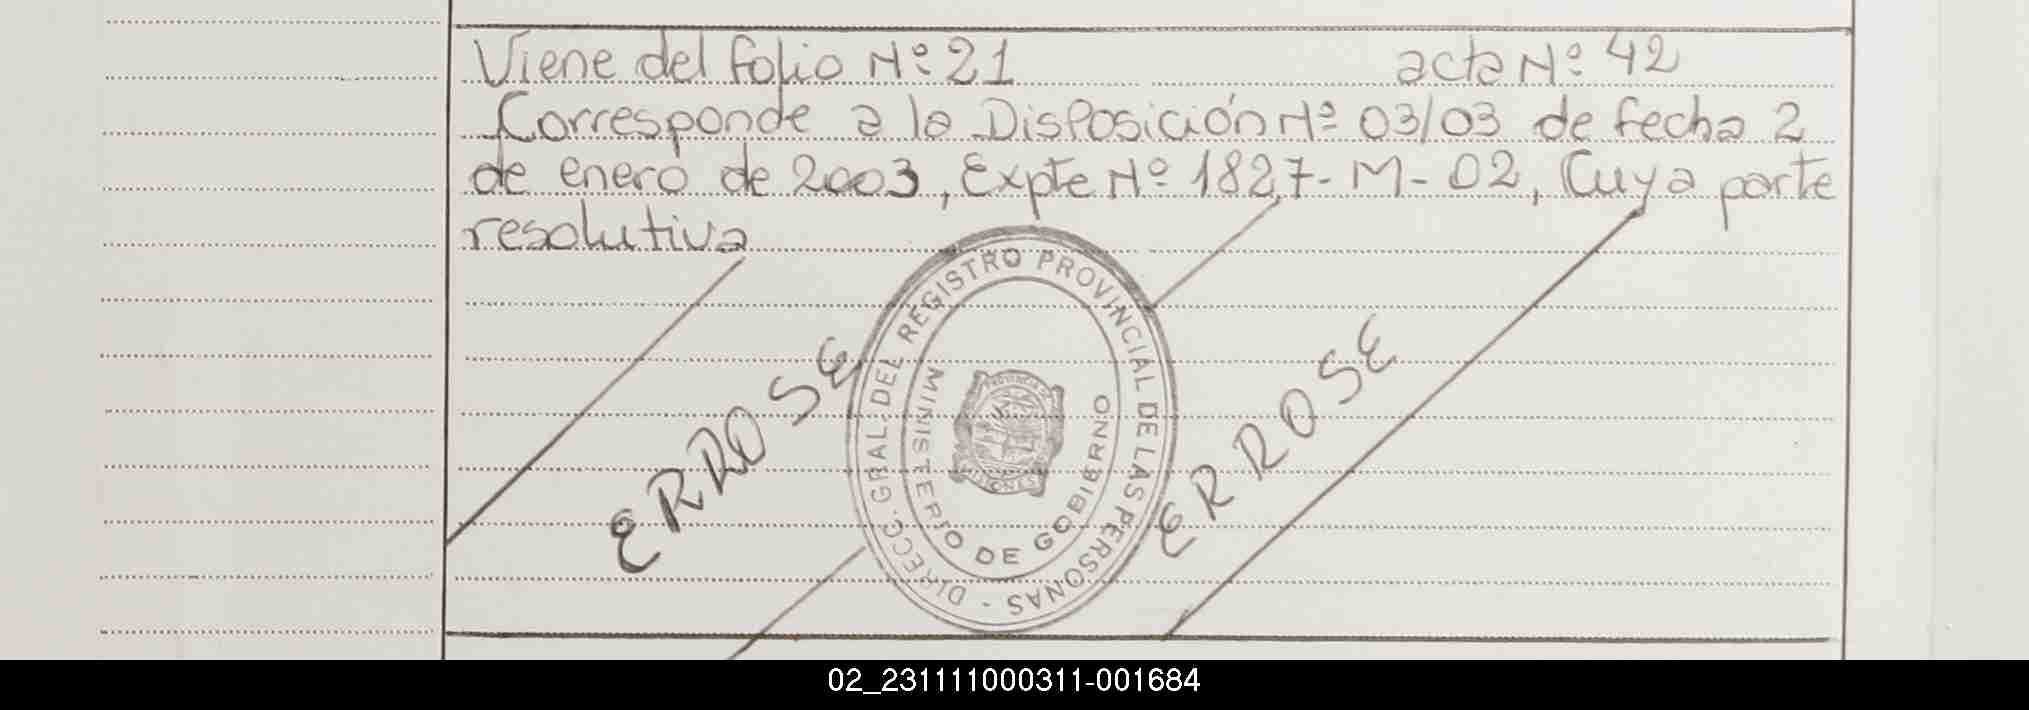 Viene del folio Nº 21 acta Nº 42
Corresponde a la Disposición Nº 03/03 de fecha 2
de enero de 2003, Expte Nº 1827-M-02, Cuya parte
resolutiva
ERROSE
ERROSE
DIRECC. GRAL. DEL REGISTRO PROVINCIAL DE LAS PERSONAS -
MINISTERIO DE GOBIERNO
PROVINCIA
MISIONES
02_231111000311-001684